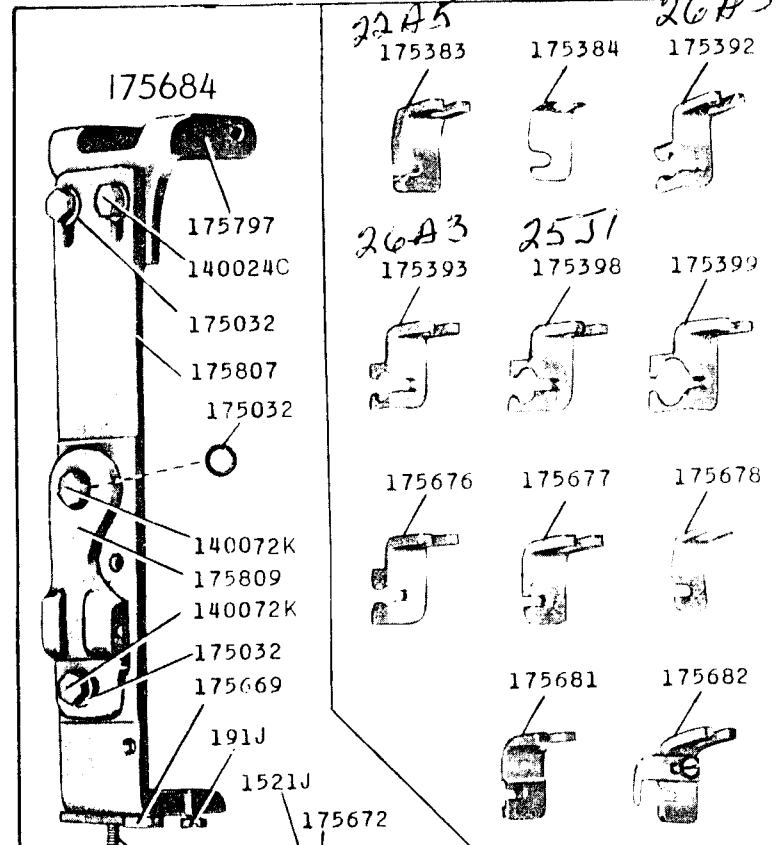 175684
175797
140024C
175032
175807
175032
140072K
175809
140072K
175032
175669
191J
1521J
175672
22A5 26A3
175383 175384 175392
26A3 25J1
175393 175398 175399
175676 175677 175678
175681 175682